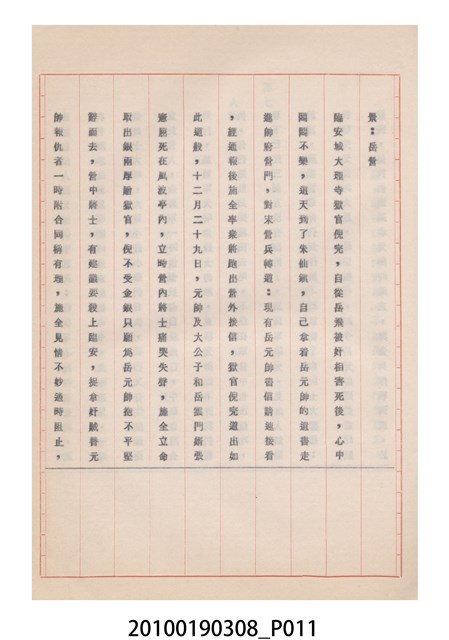 景：岳營
臨安城大理寺獄官倪完，自從岳飛被奸相害死後，心中
悶悶不樂，這天到了朱仙鎮，自己拿着岳元帥的遺書走
進帥府營門，對宋營兵轉道：現有岳元帥書信請速接看
，經通報後施全率衆將跑出營外接信，獄官倪完道出如
此這般，十二月二十九日，元帥及大公子和岳張門婿張
憲屈死在風波亭內，立時營內將士痛哭失聲，施全立命
取出銀兩厚贈獄官，倪不受金銀只願爲岳元帥抱不平堅
辭而去，營中騎士，有怒氣要殺上臨安，提拿奸賊替元
帥報仇者一時附合同稱有理，施全見情不妙適時阻止，
20100190308_P011